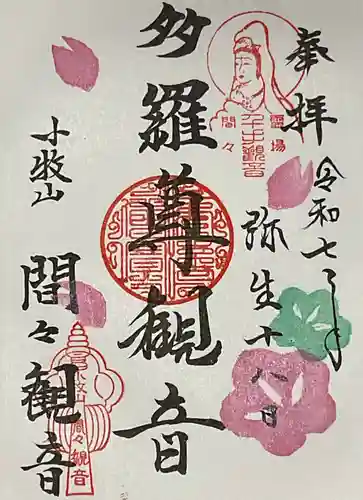 奉拝
令和七年
弥生十八日
霊場
間々
千手観音
多羅尊観音
小牧山
間々観音
間々観音